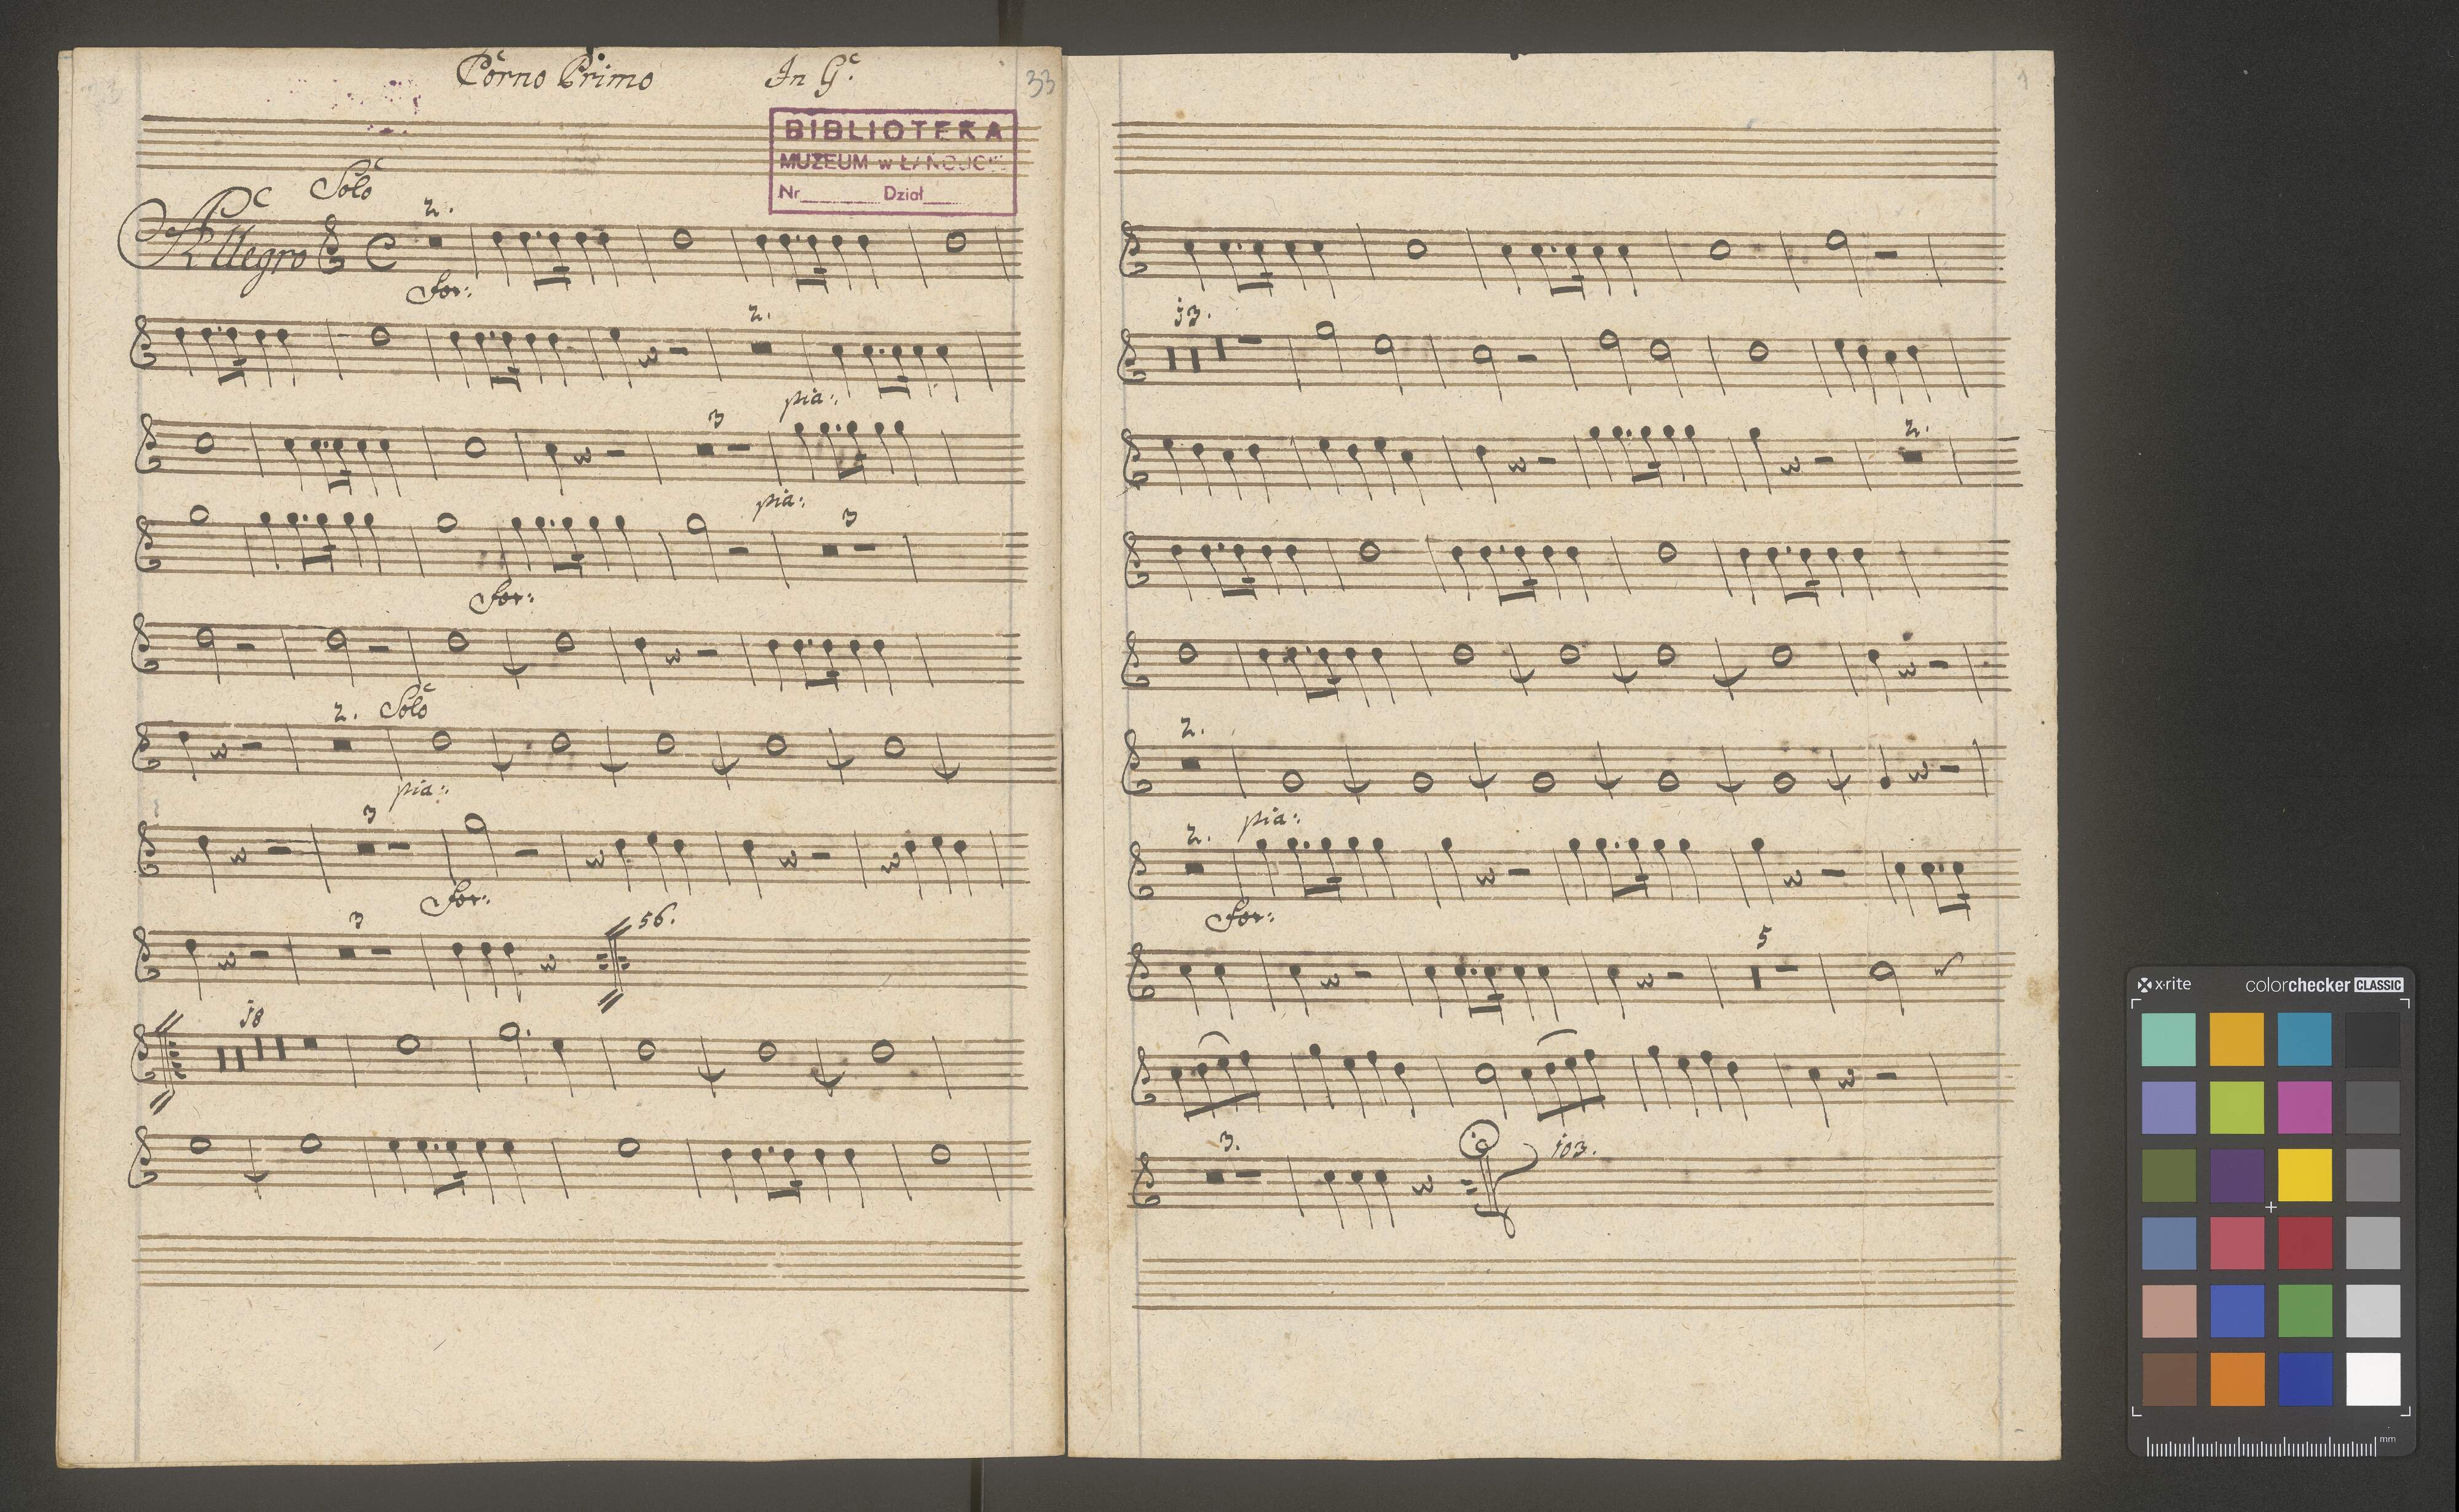 Corno Primo In G.
33
BIBLIOTEKA
MUZEUM w ŁAŃCUCIE
Nr______ Dział____
Solo
Allegro
2.
for:
2.
pia:
3
pia:
3
for:
2. Solo
pia:
3
for:
3
56.
18
1
13.
2.
2.
2. pia:
for:
5
3.
103.
x·rite colorchecker CLASSIC
mm